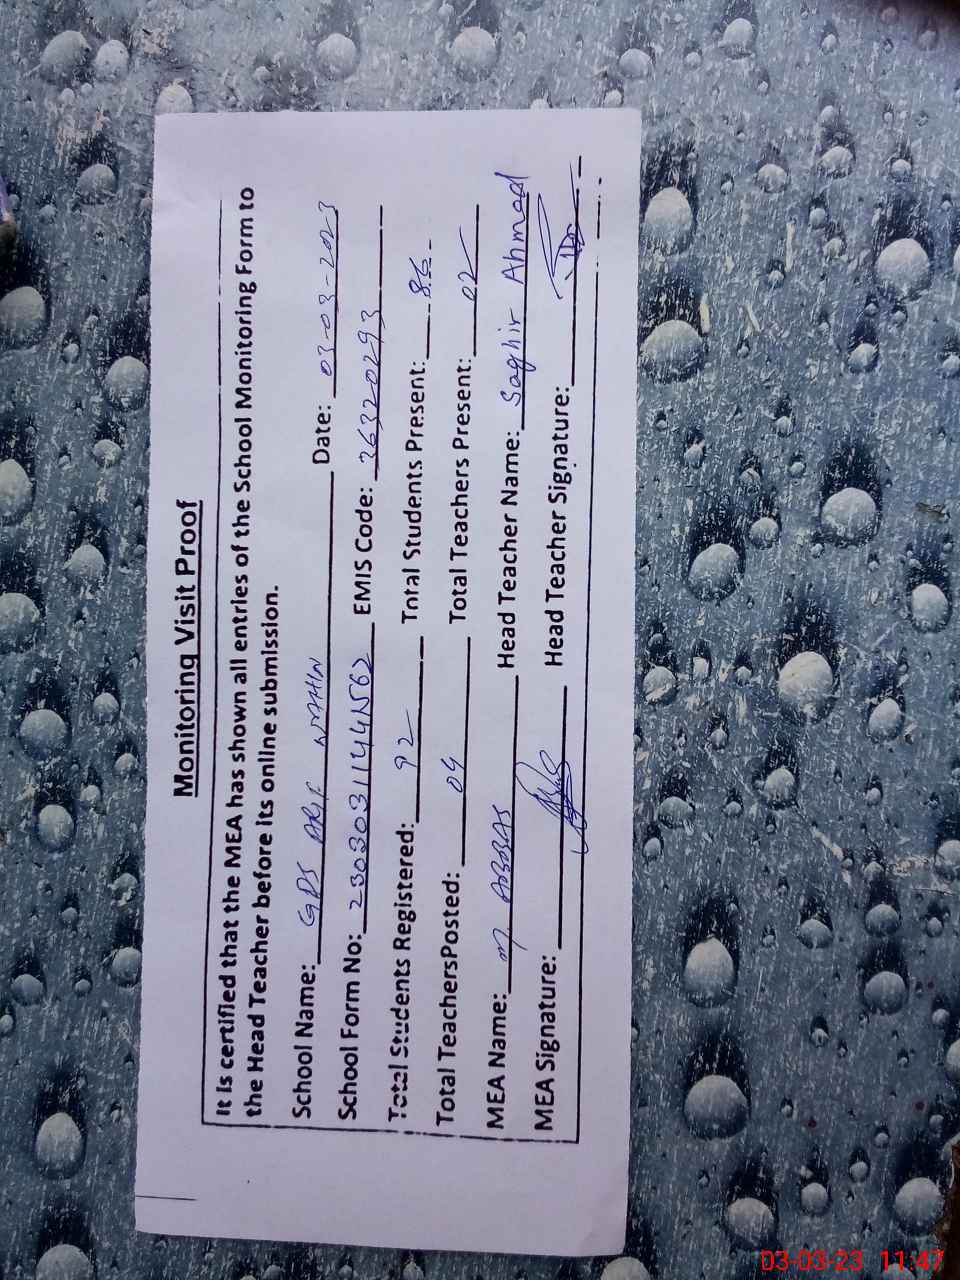 Monitoring Visit Proof
It is certified that the MEA has shown all entries of the School Monitoring Form to
the Head Teacher before its online submission.
School Name: GPS ARIF Date: 03-03-2023
School Form No: 2303031144562 EMIS Code: 36320293
Total Students Registered: 92 Total Students Present: 86
Total TeachersPosted: 04 Total Teachers Present: 02
MEA Name: M. ABBAS Head Teacher Name: Saghir Ahmad
MEA Signature: Head Teacher Signature:
03-03-23 11:47